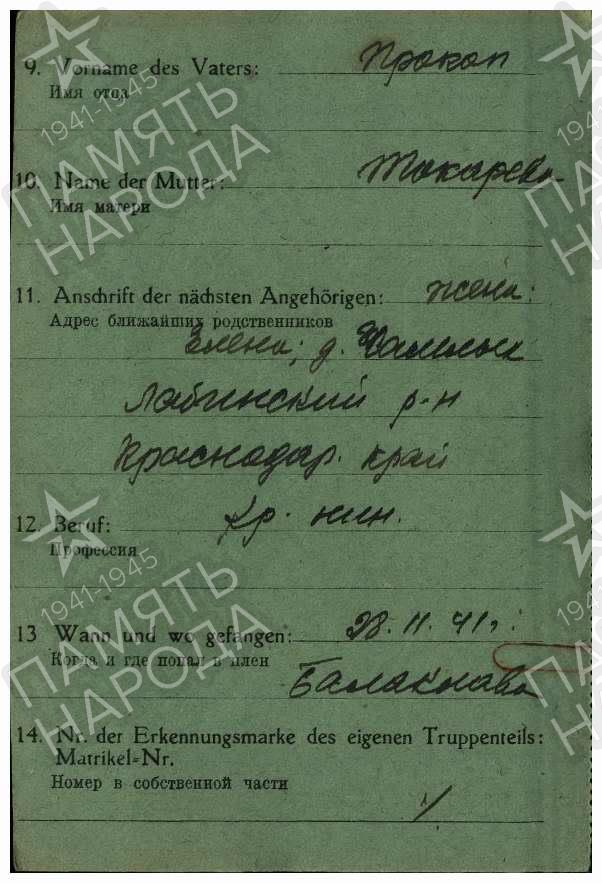 9. Vorname des Vaters: Прокоп
Имя отца
10. Name der Mutter: Токарева
Имя матери
11. Anschrift der nächsten Angehörigen: жена:
Адрес ближайших родственников
Елена; д.
Лабинский р-н
Краснодар. край
12. Beruf:
Профессия
13 Wann und wo gefangen: 28. 11. 41 г.
Когда и где попал в плен
Балаклава
14. Nr. der Erkennungsmarke des eigenen Truppenteils:
Matrikel-Nr.
Номер в собственной части
1941-1945
ПАМЯТЬ
НАРОДА
1941-1945
ПАМЯТЬ
НАРОДА